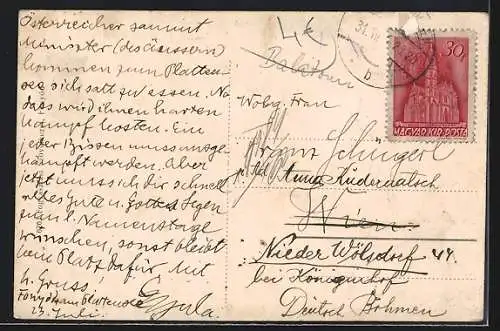 Österreicher sammt
Minister (des äussern)
kommen zum Platten-
see sich satt zu essen. Na
dass wird ihnen harten
Kampf kosten. Ein
jeder Bissen muss ausge-
kämpft werden. Aber
jetzt muss ich dir schnell
alles Gute u. Gottes Segen
zum l. Namenstage
wünschen, sonst bleibt
kein Platz dafür. Mit
h. Gruss!
Gyula
23. Juli.
4€
Balaton
31. VII
b
30f
MAGYAR KIR. POSTA
Wohg. Frau
Franz Schingerl
p. Adr. Anna Rudernatsch
Wien
Nieder Wölsdorf 44.
bei Königinhof
Deutsch Böhmen